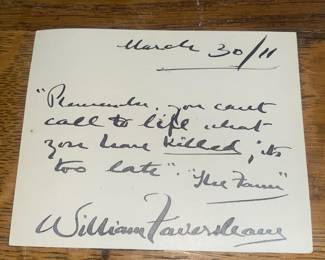 March 30/11
"Remember, you can't
call to life what
you have killed; its
too late". "The Faun"
William Faversham